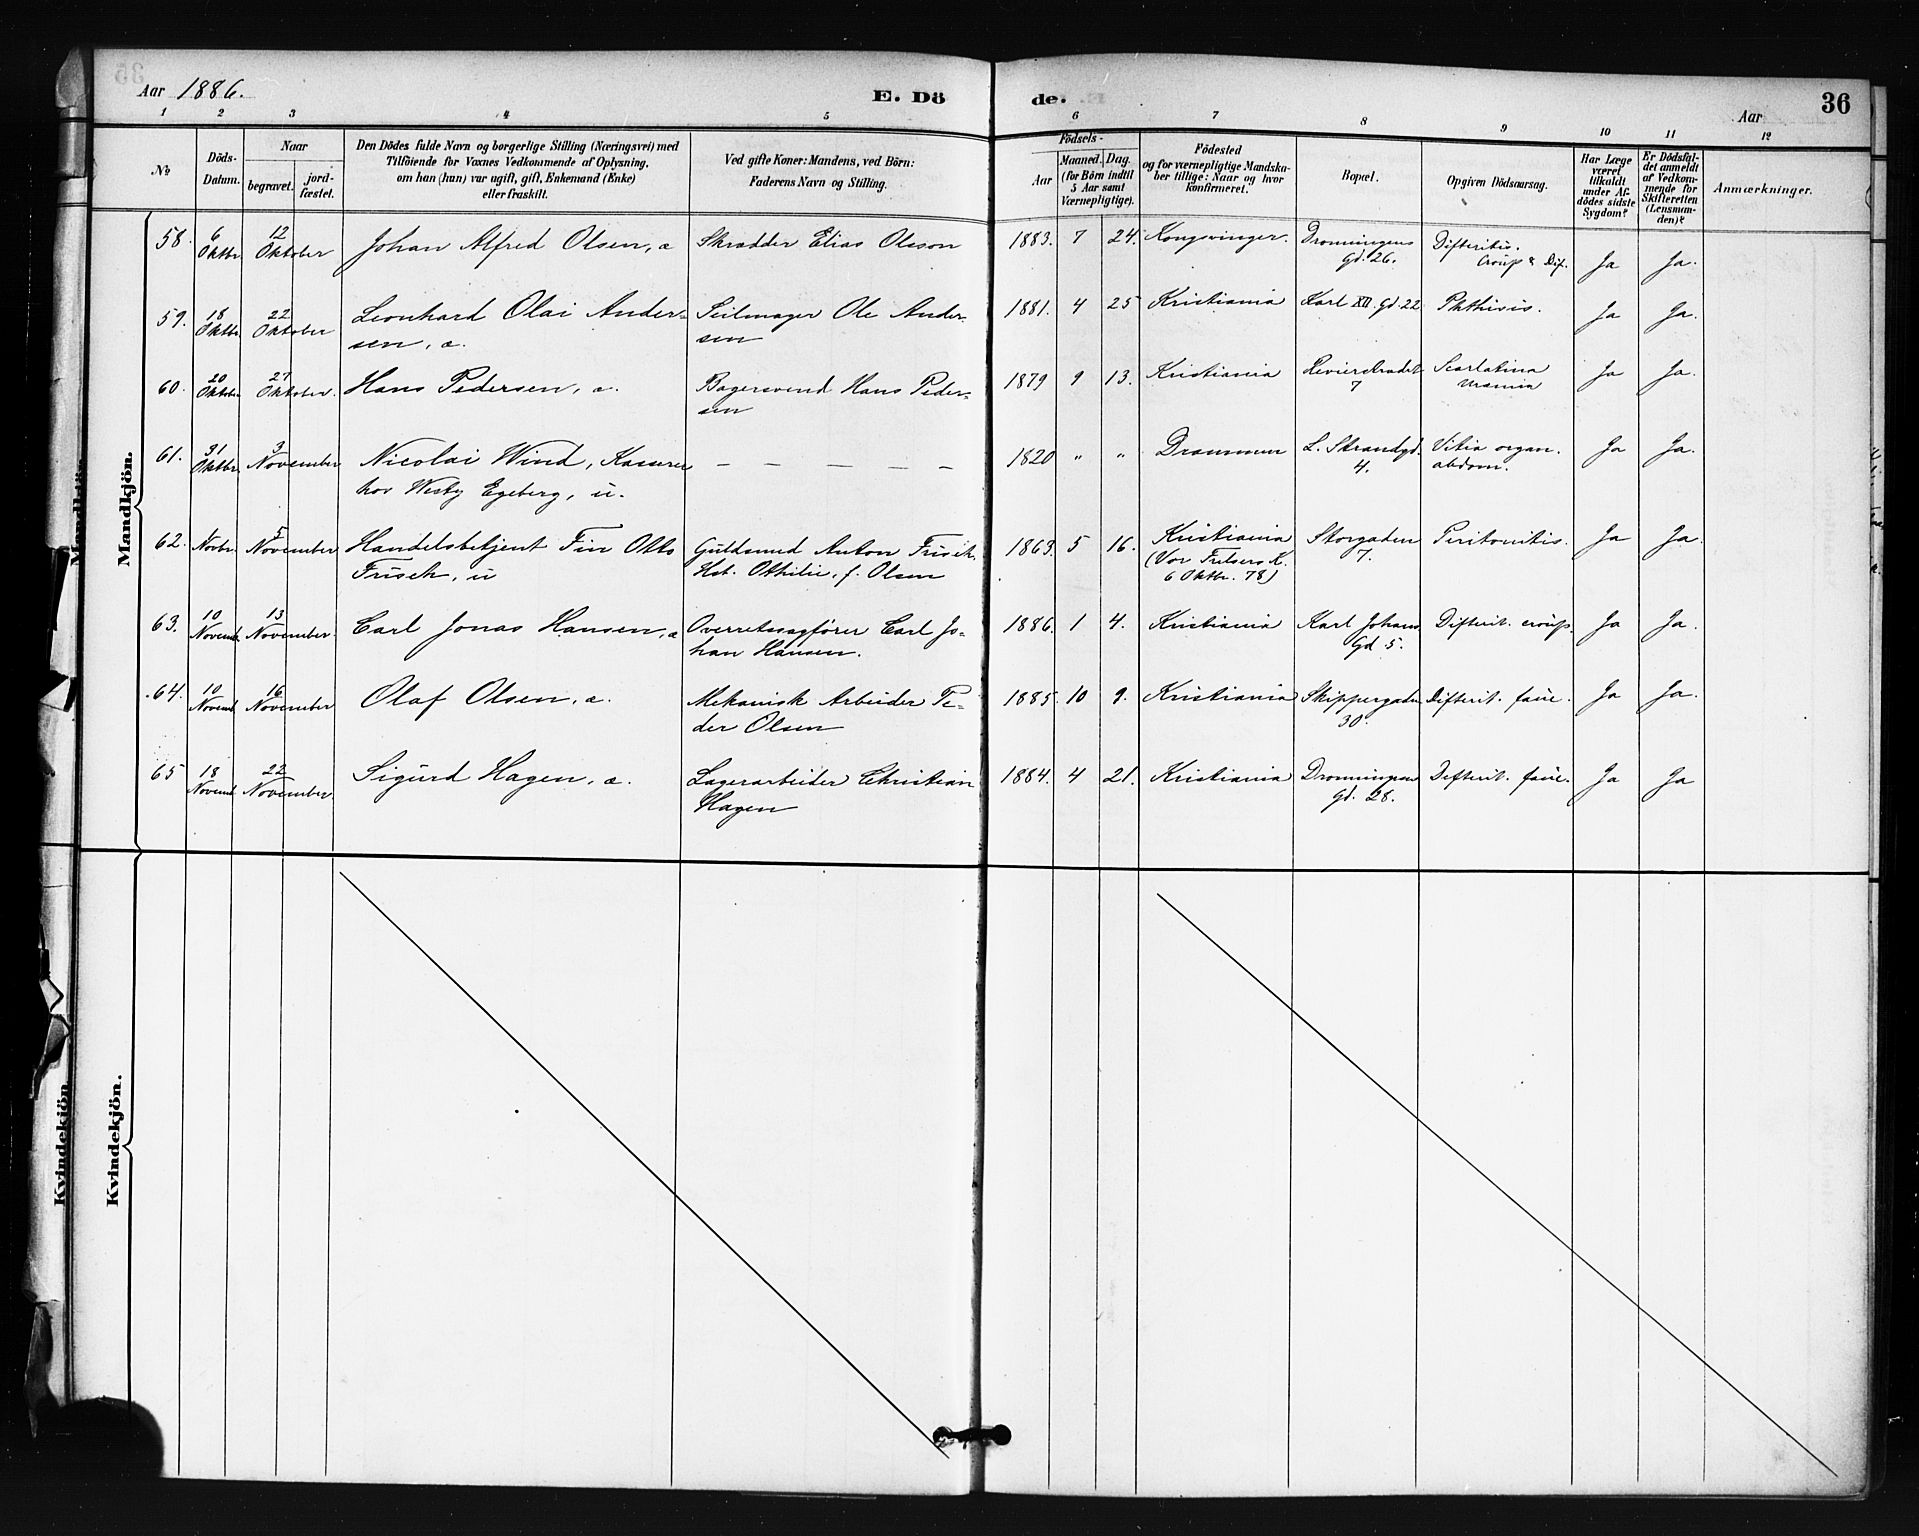 Aar 1886.
E. Dö
de.
Aar
36
1 2 3 4 5 6 7 8 9 10 11 12
No
Döds-Datum.
Naar
begravet.
jord-fæstet.
Den Dödes fulde Navn og borgerlige Stilling (Næringsvei) med
Tilföiende for Voxnes Vedkommende af Oplysning,
om han (hun) var ugift, gift, Enkemand (Enke)
eller fraskilt.
Ved gifte Koner: Mandens, ved Börn:
Faderens Navn og Stilling.
Födsels-
Aar
Maaned.
Dag.
(for Börn indtil
5 Aar samt
Værnepligtige).
Födested
og for værnepligtige Mandska-
ber tillige: Naar og hvor
konfirmeret.
Bopæl.
Opgiven Dödsaarsag.
Har Læge
været
tilkaldt
under Af-
dödes sidste
Sygdom?
Er Dödsfal-
det anmeldt
af Vedkom-
mende for
Skifteretten
(Lensman-
den)?
Anmærkninger.
Mandkjön.
58. 6 Oktbr. 12 Oktober Johan Alfred Olsen, a Skrædder Elias Olsson 1883. 7 24. Kongsvinger. Dronningens Gd. 26. Difteritis. Croup & Dif. Ja Ja.
59. 18 Oktbr. 22 Oktober Leonhard Olai Ander-
sen, a. Seilmager Ole Ander-
sen 1881. 4 25 Kristiania Karl XII. Gd. 22 Phthisis. Ja Ja.
60. 20 Oktbr. 27 Oktober. Hans Pedersen, a. Bagersvend Hans Peder-
sen 1879 9 13. Kristiania 7 Scarlatina Uræmia Ja Ja.
61. 31 Oktbr. 3 November Nicolai Wind, Kasserer
hos Westy Egeberg, u. — — — — — 1820 " " Drammen L. Strandgd. 4. Vitia organ. abdom. Ja Ja.
62. Novbr. 5 November Handelsbetjent Fin Otto
Frisch, u Guldsmed Anton Frisch.
Hst. Othilie, f. Olsen 1863. 5 16. Kristiania
(Vor Frelsers K.
6 Oktbr. 78) Storgaden 7. Peritonitis. Ja Ja.
63. 10 Novemb. 13 November. Carl Jonas Hansen, a Overretssagförer Carl Jo-
han Hansen. 1886. 1 4. Kristiania Karl Johans Gd 5. Difterit. croup. Ja Ja.
64. 10 Novemb. 16 November Olaf Olsen, a. Mekanisk Arbeider Pe-
der Olsen 1885. 10 9. Kristiania Skippergaden 30. Difterit. fauc. Ja Ja.
65 18 Novemb. 22 November. Sigurd Hagen, a. Lagerarbeider Christian
Hagen 1884. 4 21. Kristiania Dronningens Gd. 28. Difterit. fauc. Ja Ja
Kvindekjön.